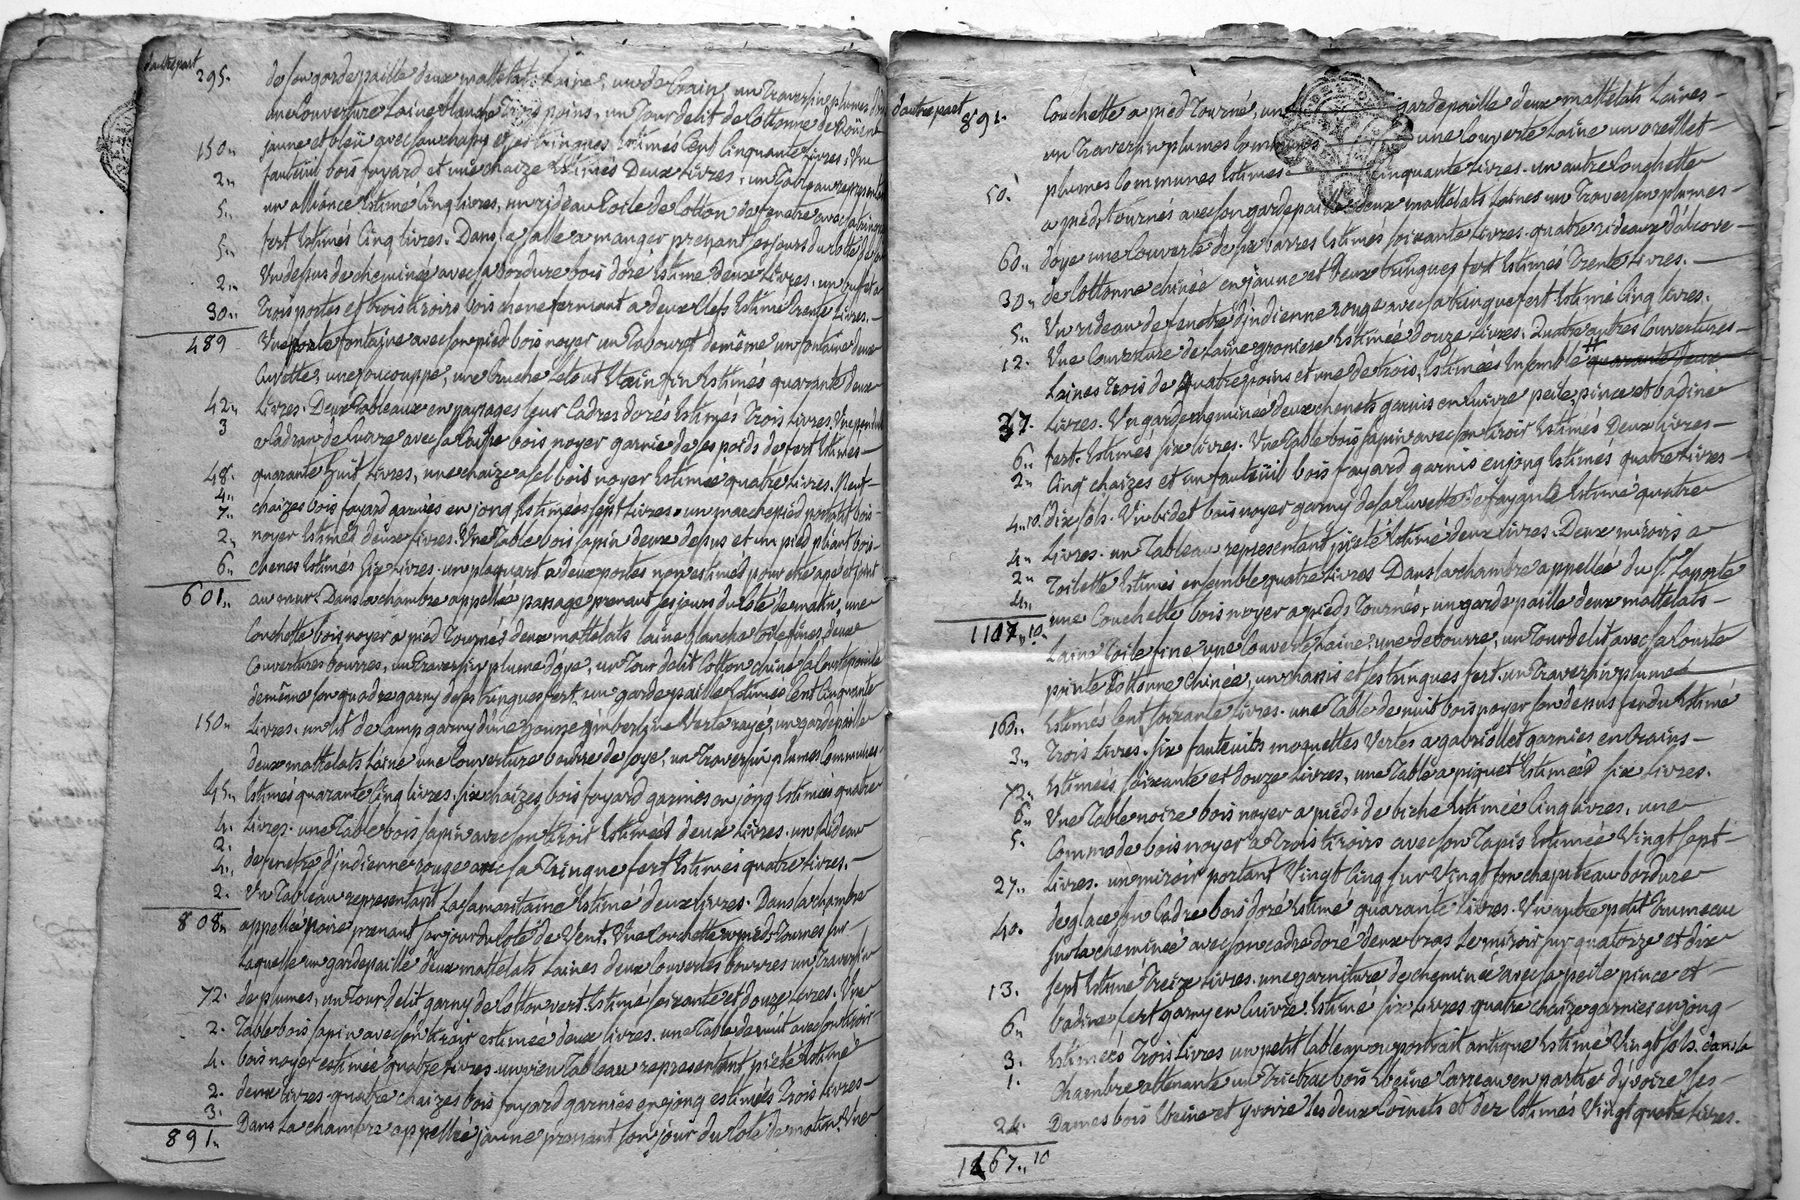 d'autre part
295. de son garde paille deux mattelats Laine, un de Crain, un Traversin plumes d'oye
une Couverture Laine blanche Trois points, un Tour de lit de Cottonne de Roüen
150.. jaune et bleü avec son chassis et ses tringues Estimés Cent Cinquante Livres. Un
2.. fauteüil bois fayard et une chaize Estimés Deux Livres, un Tableau representant
5.. un alliance Estimé Cinq Livres, un rideau Toile de Cotton de fenetre avec sa tringue
5.. fert Estimés Cinq Livres. Dans la salle a manger prenant ses jours du Cotté de
2.. Un dessus de cheminée avec sa bordure bois doré Estimé deux Livres. un buffet a
30.. Trois portes et trois tiroirs bois chene fermant a deux Clefs Estimé trente Livres.
489 Une porte fontaine avec son pied bois noyer un Tabouret de même un fontaine deux
Cuvette, une soucouppe, une Cruche Le tout Etain fin Estimés quarante deux
42.. Livres. Deux Tableaux en paysages leur Cadres dorés Estimés Trois Livres. Une pendule
3 a Cadran de Cuivre avec sa Caisse bois noyer garnie de ses poids de fert Estimée
48. quarante huit Livres, une chaize a sel bois noyer Estimée quatre Livres. Neuf
4..
7.. chaizes bois fayard garnies en jong Estimées sept Livres. un marchepied portant bois
2.. noyer Estimés deux Livres. Une Table bois sapin deux dessus et un pied pliant bois
6.. chenes Estimés six Livres. un plaquart a deux portes non estimés pour etre apé et joint
601.. au mur. Dans la chambre appellée passage prenant ses jours du Coté de matin, une
Couchette bois noyer a pied Tournés deux mattelats laine blanche toile fines, deux
Couvertures bourres, un Traversin plume d'oye, un Tour de lit Cotton chiné sa Courtepointe
de même son quadre garny de ses tringues fert un garde paille Estimés Cent Cinquante
150.. Livres. un lit de Camp garny d'une housse gimbergüe Verte rayé, un garde paille
deux mattelats Laine une Couverture bourre de soye, un Traversin plumes Communes
45.. Estimés quarante Cinq Livres, six chaizes bois fayard garnies en jong Estimées quatre
4. Livres. une Table bois sapin avec son tiroir Estimées deux Livres. un Rideau
2.
4.. de fenetre d'indienne rouge avec sa Tringue fert Estimés quatre Livres.
2. Un Tableau representant La Samaritaine Estimé deux Livres. Dans la chambre
808.. appellée noire prenant son jour du Coté de Vent. Une Couchette a pieds Tournés sur
Laquelle un garde paille deux mattelats Laines deux Couvertes bourres un Traversin
72. de plumes, un Tour de lit garny de Cotton vert Estimé soixante et douze Livres. Une
2. Table bois sapin avec son tiroir estimée deux Livres. une Table de nuit avec son tiroir
4. bois noyer estimée quatre Livres. un vieu Tableau representant pieté Estimé
2. deux Livres. quatre chaizes bois fayard garnies en jong estimées Trois Livres
3. Dans La chambre appellée jaune prenant son jour du Coté de matin. Une
891..
d'autre part 891. Couchette a pied Tourné, un garde paille deux mattelats Laines
un Traversin plumes Communes une Couverte Laine un oreillet
50. plumes Communes Estimés Cinquante Livres. un autre Couchette
a pieds tournés avec son garde paille deux mattelats Laines un Traversin plumes
60.. d'oye une Couverte de six barres Estimés soixante Livres. quatre rideaux d'alcove
30.. de Cottonne chinée en jaune et Deux tringues fert Estimés Trente Livres.
5.. Un rideau de fenetre d'indienne rouge avec sa tringue fert Estimé Cinq Livres.
12. Une Couverture de Laine Estimée Douze Livres. Quatre autres Couvertures
Laines Trois de Quatre poins et une de trois, Estimées Ensemble # quarante deux
37. Livres. Un garde cheminée deux chenets garnis en Cuivre peile, pince et badine
6.. fert. Estimés six Livres. Une Table bois sapin avec son tiroir Estimés Deux Livres
2.. Cinq chaizes et un fauteüil bois fayard garnis en jong Estimés quatre Livres
4..10. dix sols. Un bidet bois noyer garny de sa Cuvette de fayance Estimé quatre
4.. Livres. un Tableau representant pieté Estimé deux Livres. Deux miroirs a
2..
4.. Toilette Estimés ensemble quatre Livres Dans la chambre appellée du S.r Laporte
1107..10. une Couchette bois noyer a pieds Tournés, un garde paille deux mattelats
Laine Toile fine une Couverte Laine, une de bourre, un Tour de lit avec sa Courte
pointe Cottonne Chinée, un chassis et ses tringues fert un Traversin plumes
160.. Estimés Cent soixante Livres. une Table de nuit bois noyer son dessus fendu Estimé
3.. Trois Livres. six fauteuils moquettes Vertes a gabriollet garnies en Crains
72.. Estimées soixante et douze Livres, une Table a piquet Estimées six Livres.
6.. Une Table noire bois noyer a pieds de biche Estimée Cinq Livres, une
5. Commode bois noyer a Trois tiroirs avec son Tapis Estimée Vingt sept
27.. Livres. un miroir portant Vingt Cinq sur Vingt son chapiteau bordure
40. de glace son Cadre bois doré Estimé quarante Livres. Un autre petit Trumeau
sur la cheminée avec son cadre doré deux bras Le miroir sur quatorze et dix
13. sept Estimé Treize Livres. une garniture de cheminée avec sa peile pince et
6.. badine fert garny en Cuivre Estimé six Livres quatre chaize garnies en jong
3. Estimées Trois Livres un petit tableau ou portrait antique Estimé Vingt sols. dans la
1. Chambre attenante un Trictrac bois Ebeine Carreau en partie d'yvoire Les
24. Dames bois Ebeine et yvoire Les deux Cornets et dez Estimés Vingt quatre Livres.
1467..10